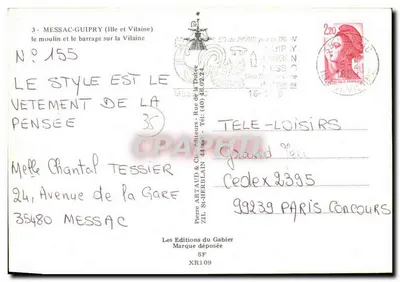 3 - MESSAC-GUIPRY (Ille et Vilaine)
le moulin et le barrage sur la Vilaine
N° 155
LE STYLE EST LE
VETEMENT DE LA
PENSÉE
35
Melle Chantal TESSIER
24, Avenue de la GARE
35480 MESSAC
Pierre ARTAUD & Cie
Rue de la
ZIL St-HERBLAIN 44
Tél. (40) 46.02.24
GUIPRY
2,20
CPAREMA
TELE-LOISIRS
Grand
Cedex 2395
99239 PARIS CONCOURS
Les Editions du Gabier
Marque déposée
8F
XR109